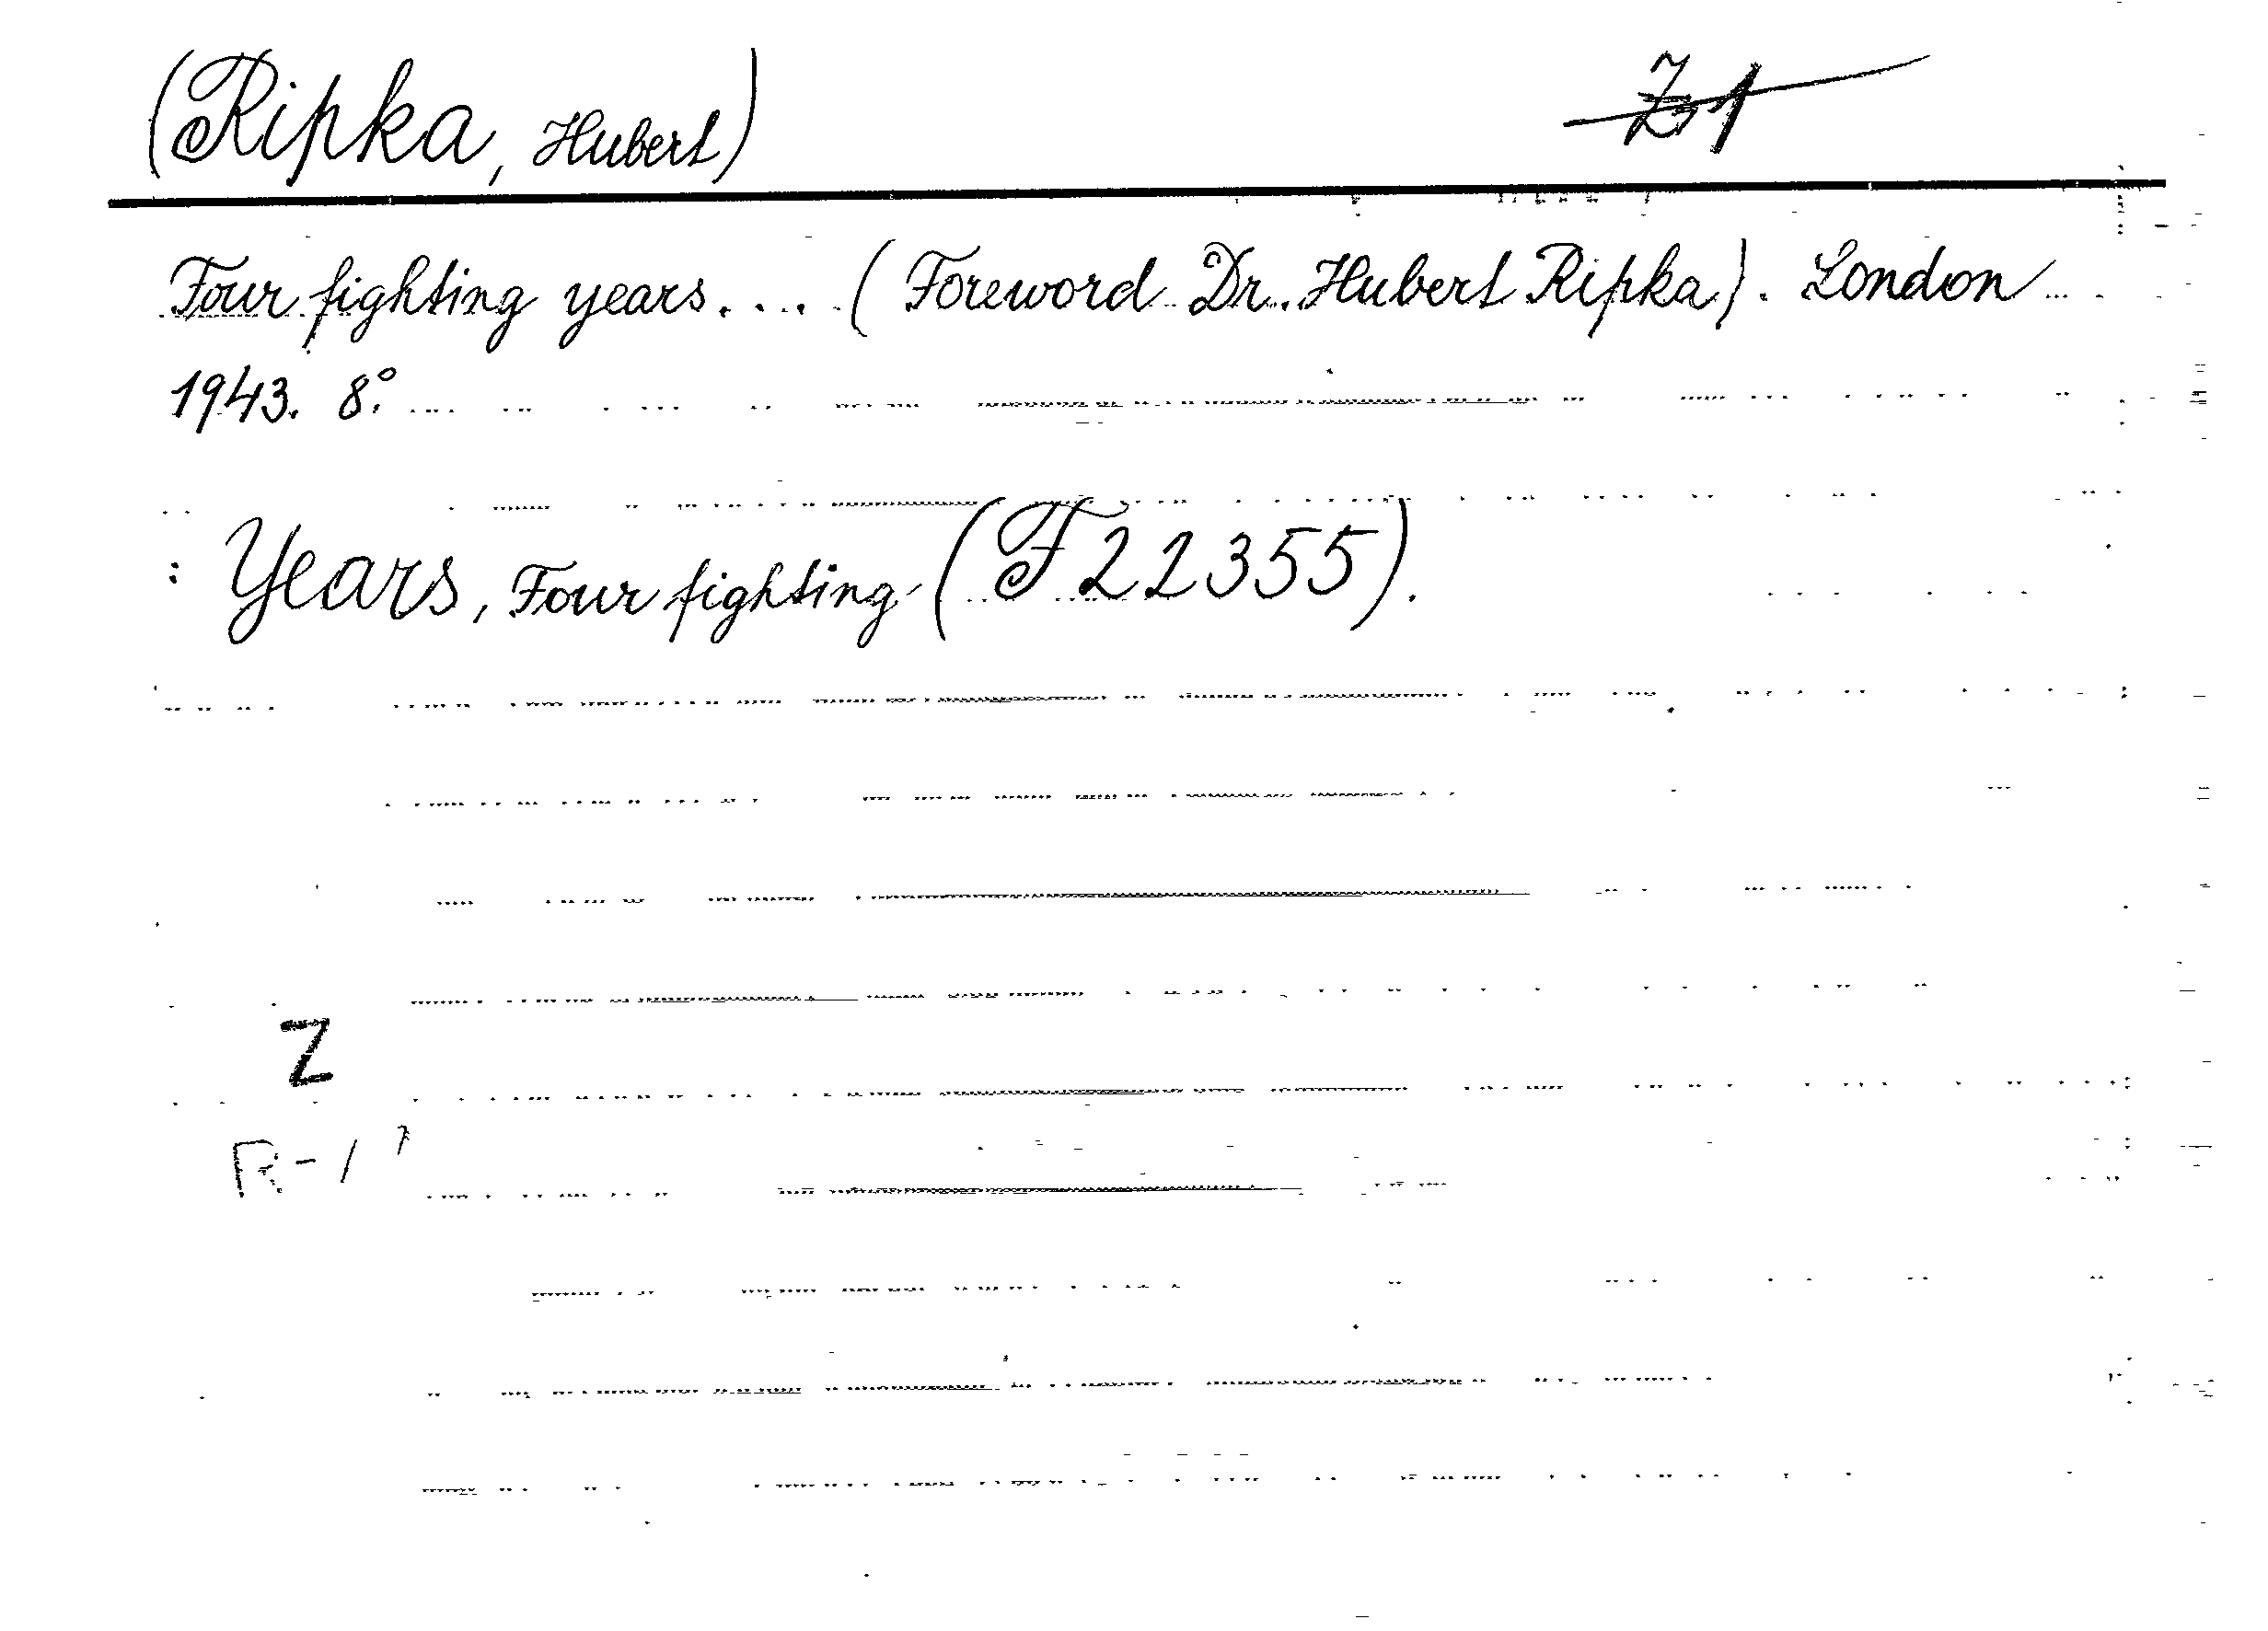 (Ripka, Hubert) Z1
Four fighting years. ... (Foreword Dr. Hubert Ripka). London
1943. 8°.
: Years, Four fighting (F 22355).
Z
R-1